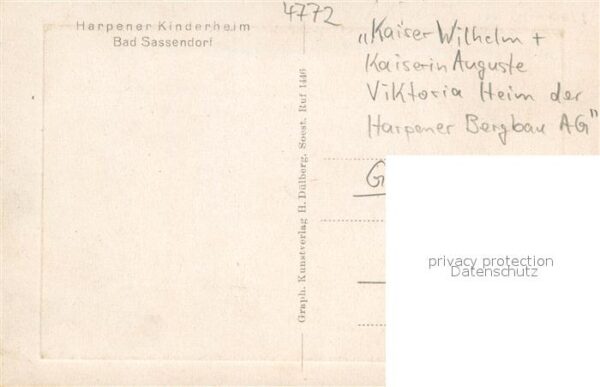 Harpener Kinderheim
Bad Sassendorf
4772
„Kaiser Wilhelm +
Kaiserin Auguste
Viktoria Heim der
Harpener Bergbau AG"
Graph. Kunstverlag H. Dülberg, Soest. Ruf 1446
G
privacy protection
Datenschutz